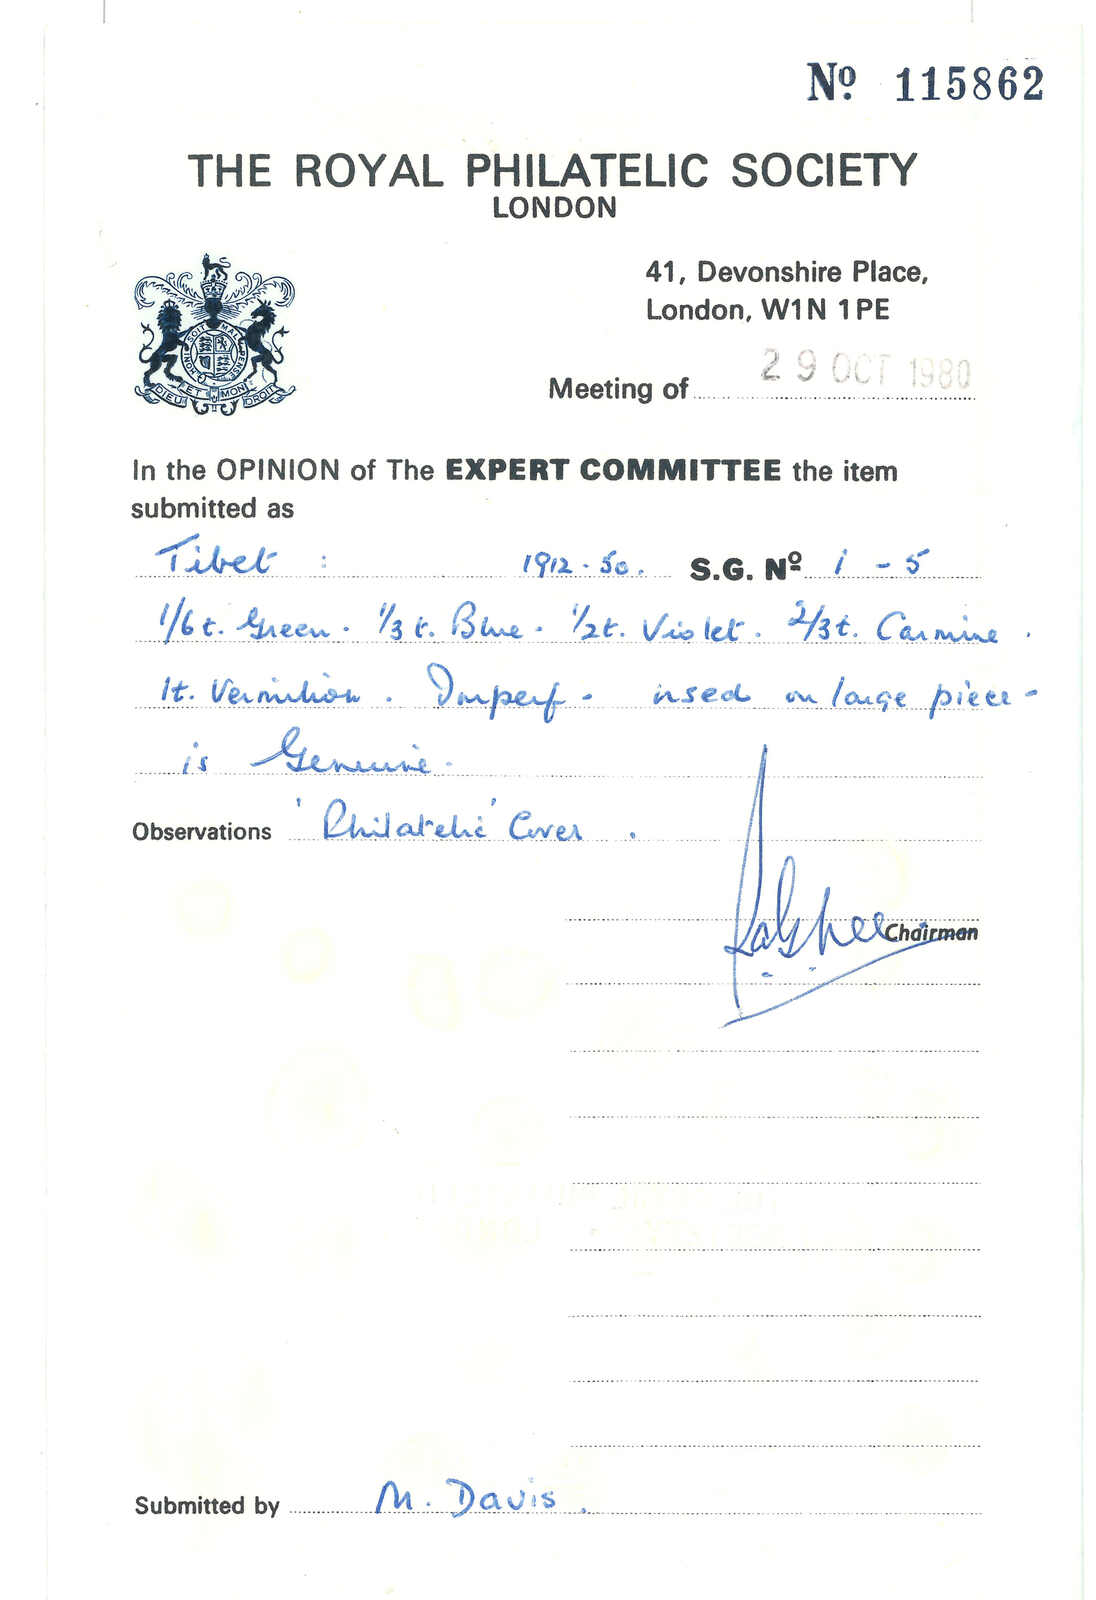 Nº 115862
THE ROYAL PHILATELIC SOCIETY
LONDON
41, Devonshire Place,
London, W1N 1PE
SOIT MAL PENSE HONI
DIEU ET MON DROIT
Meeting of 29 OCT 1980
In the OPINION of The EXPERT COMMITTEE the item
submitted as
Tibet : 1912-50. S.G. Nº 1 - 5
1/6 t. Green. 1/3 t. Blue. 1/2 t. Violet. 2/3 t. Carmine.
1t. Vermilion. Imperf - used on large piece -
is Genuine.
Observations 'Philatelic' Cover.
Chairman
Submitted by M. Davis.